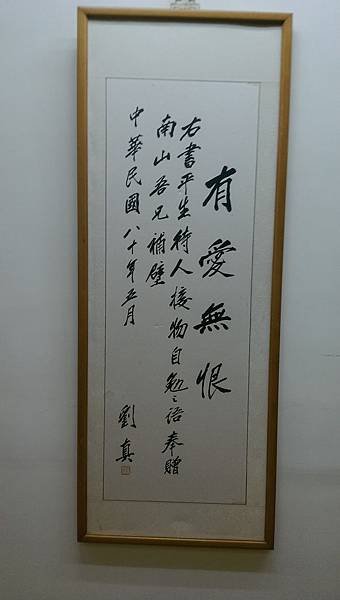 有愛無恨
右書平生待人接物自勉之語奉贈
南山吾兄補壁
中華民國八十年五月
劉真